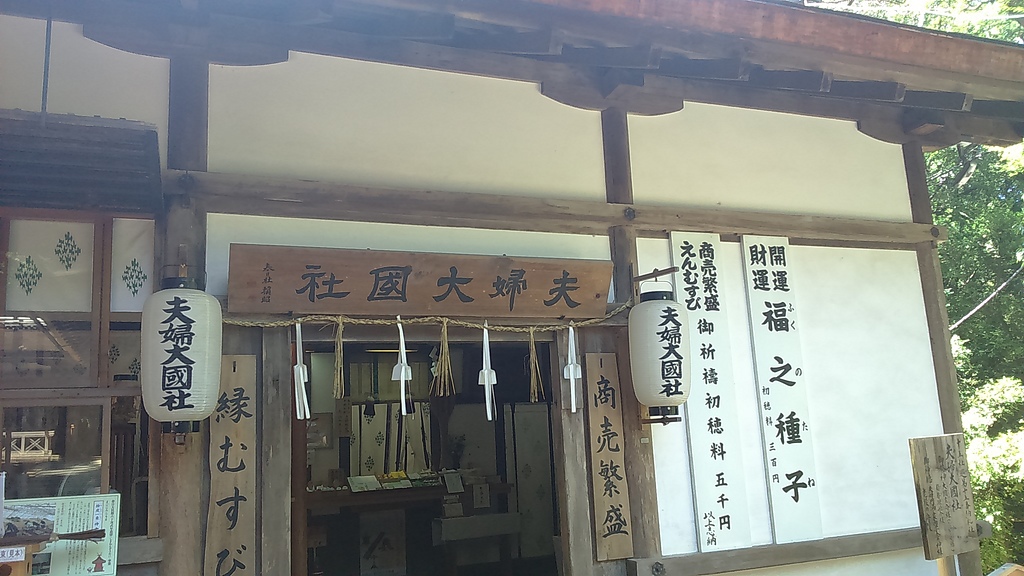 夫婦大國社
夫婦大國社
夫婦大國社
縁むすび
商売繁盛
商売繁盛
えんむすび
御祈禱初穂料 五千円
以上志納
開運
財運
福之種子
ふくのたね
初穂料三百円